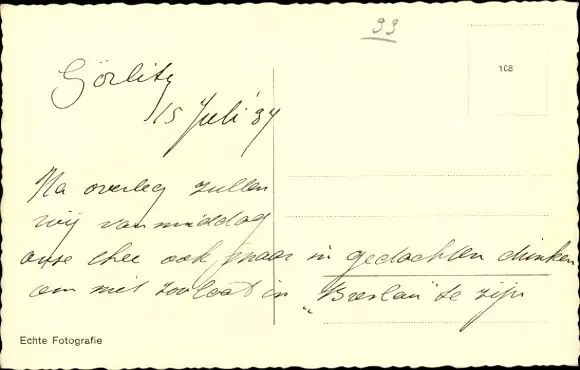 99
108
Görlitz
15 Juli '34
Na overleg zullen
wij vanmiddag
onze thee ook maar in gedachten drinken
om niet zoo laat in „Breslau" te zijn
Echte Fotografie